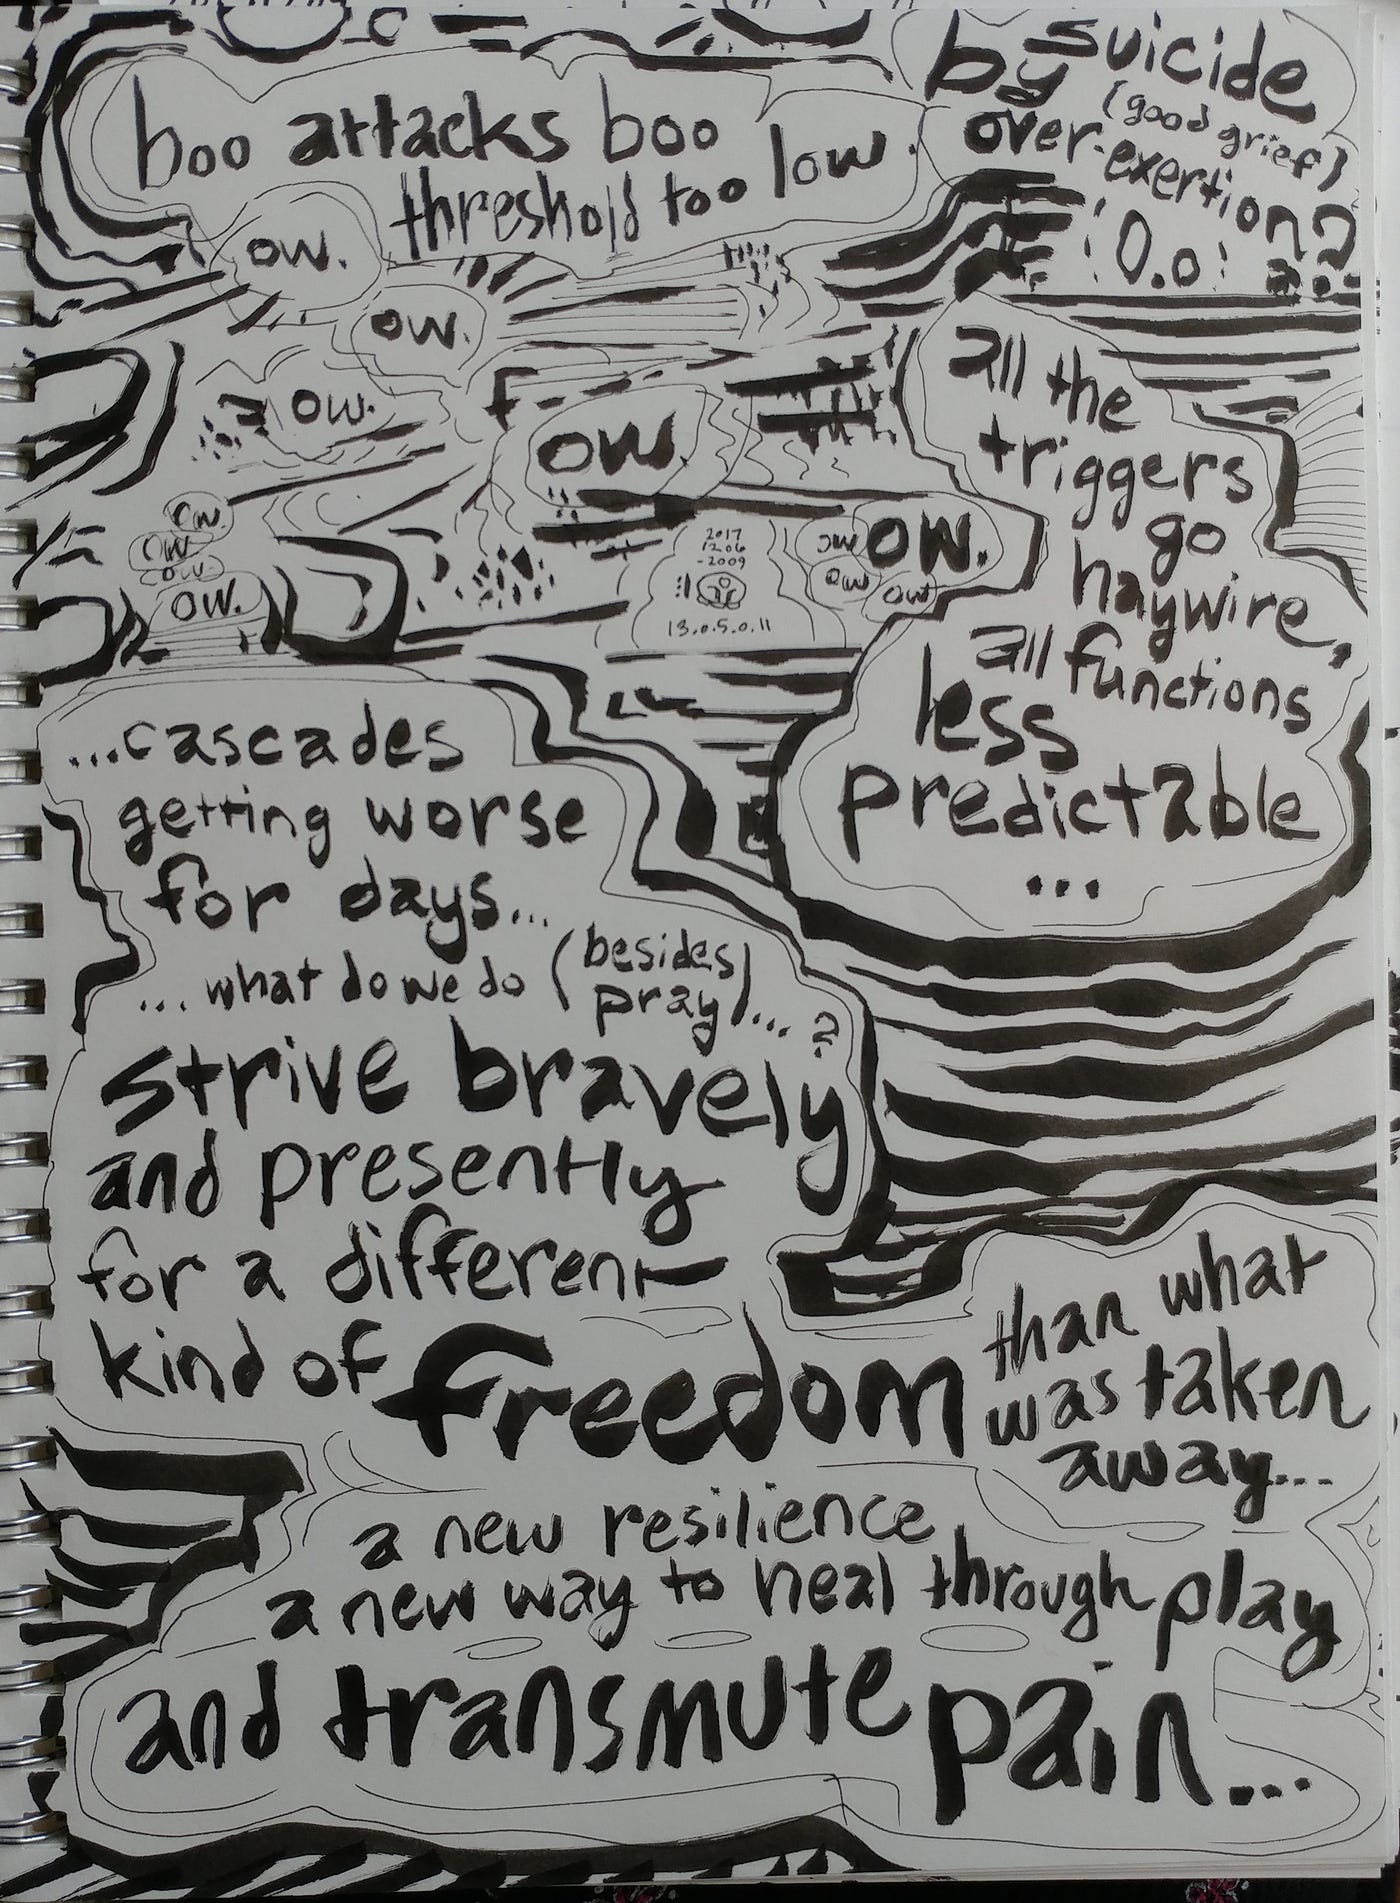 boo attacks boo
threshold too low.
suicide
by
(good grief)
over-exertion?
!0.o!
ow.
ow.
ow.
f-
ow.
ow.
ow.
ow.
ow.
ow
ow.
ow
ow
2017
1206
-2009
13.0.5.0.11
all the
triggers
go
haywire,
all functions
less
predictable
...
...cascades
getting worse
for days...
...what do we do (besides
pray)...?
strive bravely
and presently
for a different
kind of freedom
than what
was taken
away...
a new resilience,
a new way to heal through play
and transmute pain...